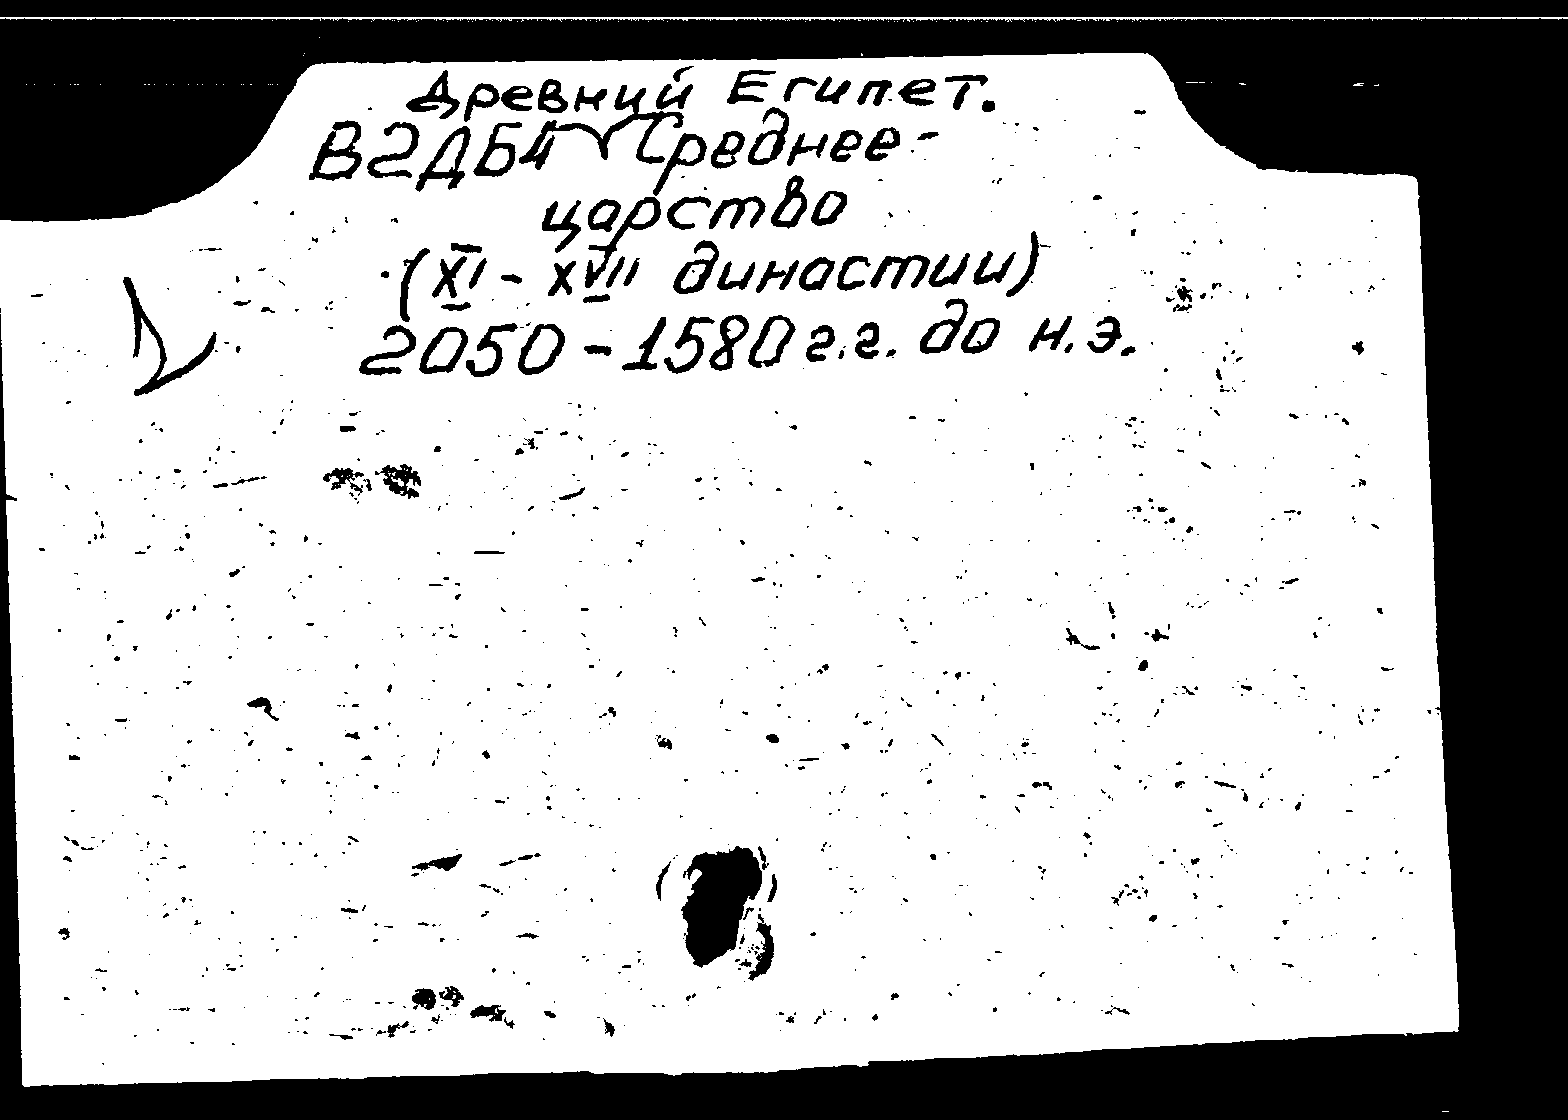 Древний Египет.
В2ДБ4 Среднее
царство
(XI - XVII династии)
2050 - 1580 г.г. до н.э.